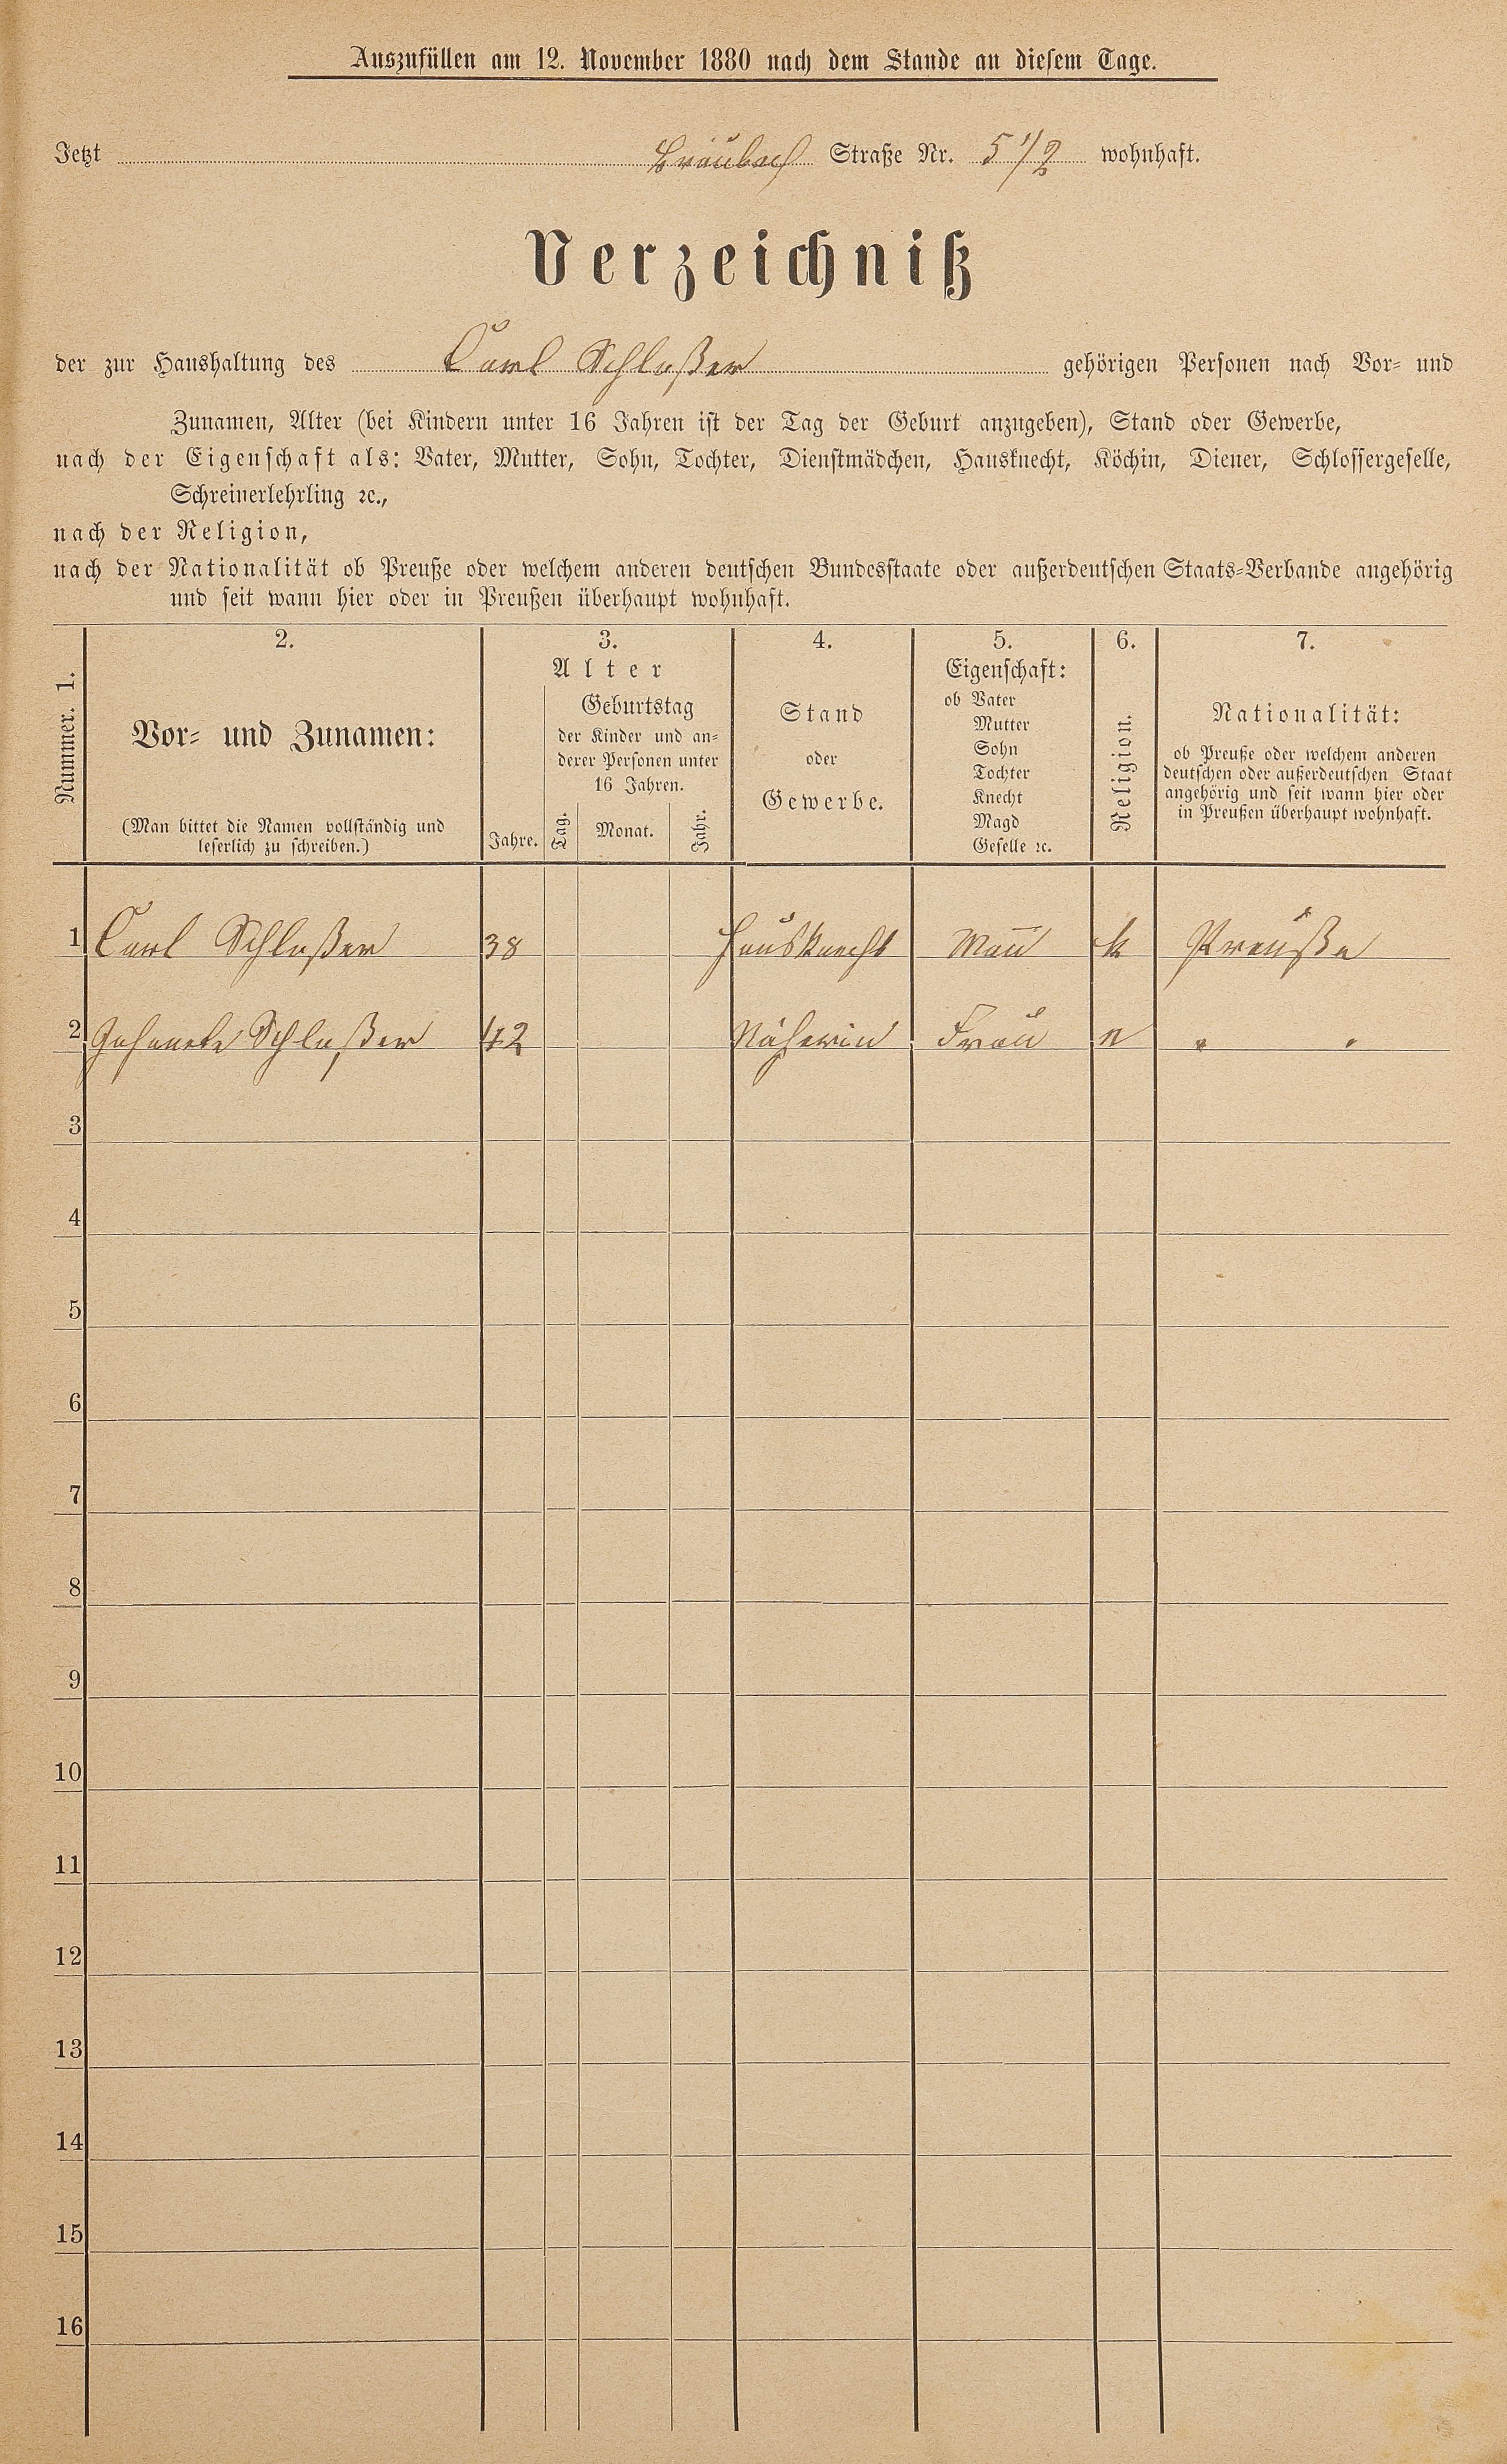 Auszufüllen am 12. November 1880 nach dem Stande an diesem Tage.
Jetzt Braubach Straße Nr. 5 1/2 wohnhaft.
Verzeichniß
der zur Haushaltung des Carl Schloßer gehörigen Personen nach Vor- und
Zunamen, Alter (bei Kindern unter 16 Jahren ist der Tag der Geburt anzugeben), Stand oder Gewerbe,
nach der Eigenschaft als: Vater, Mutter, Sohn, Tochter, Dienstmädchen, Hausknecht, Köchin, Diener, Schlossergeselle,
Schreinerlehrling ꝛc.,
nach der Religion,
nach der Nationalität ob Preuße oder welchem anderen deutschen Bundesstaate oder außerdeutschen Staats-Verbande angehörig
und seit wann hier oder in Preußen überhaupt wohnhaft.
Nummer. 1.
2.
Vor- und Zunamen:
(Man bittet die Namen vollständig und
leserlich zu schreiben.)
3.
Alter
Jahre.
Geburtstag
der Kinder und an-
derer Personen unter
16 Jahren.
Tag. Monat. Jahr.
4.
Stand
oder
Gewerbe.
5.
Eigenschaft:
ob Vater
Mutter
Sohn
Tochter
Knecht
Magd
Geselle ꝛc.
6.
Religion.
7.
Nationalität:
ob Preuße oder welchem anderen
deutschen oder außerdeutschen Staat
angehörig und seit wann hier oder
in Preußen überhaupt wohnhaft.
1 Carl Schloßer 38 Hausknecht Mann k Preuße
2 Schloßer 42 Näherin Frau e " "
3
4
5
6
7
8
9
10
11
12
13
14
15
16